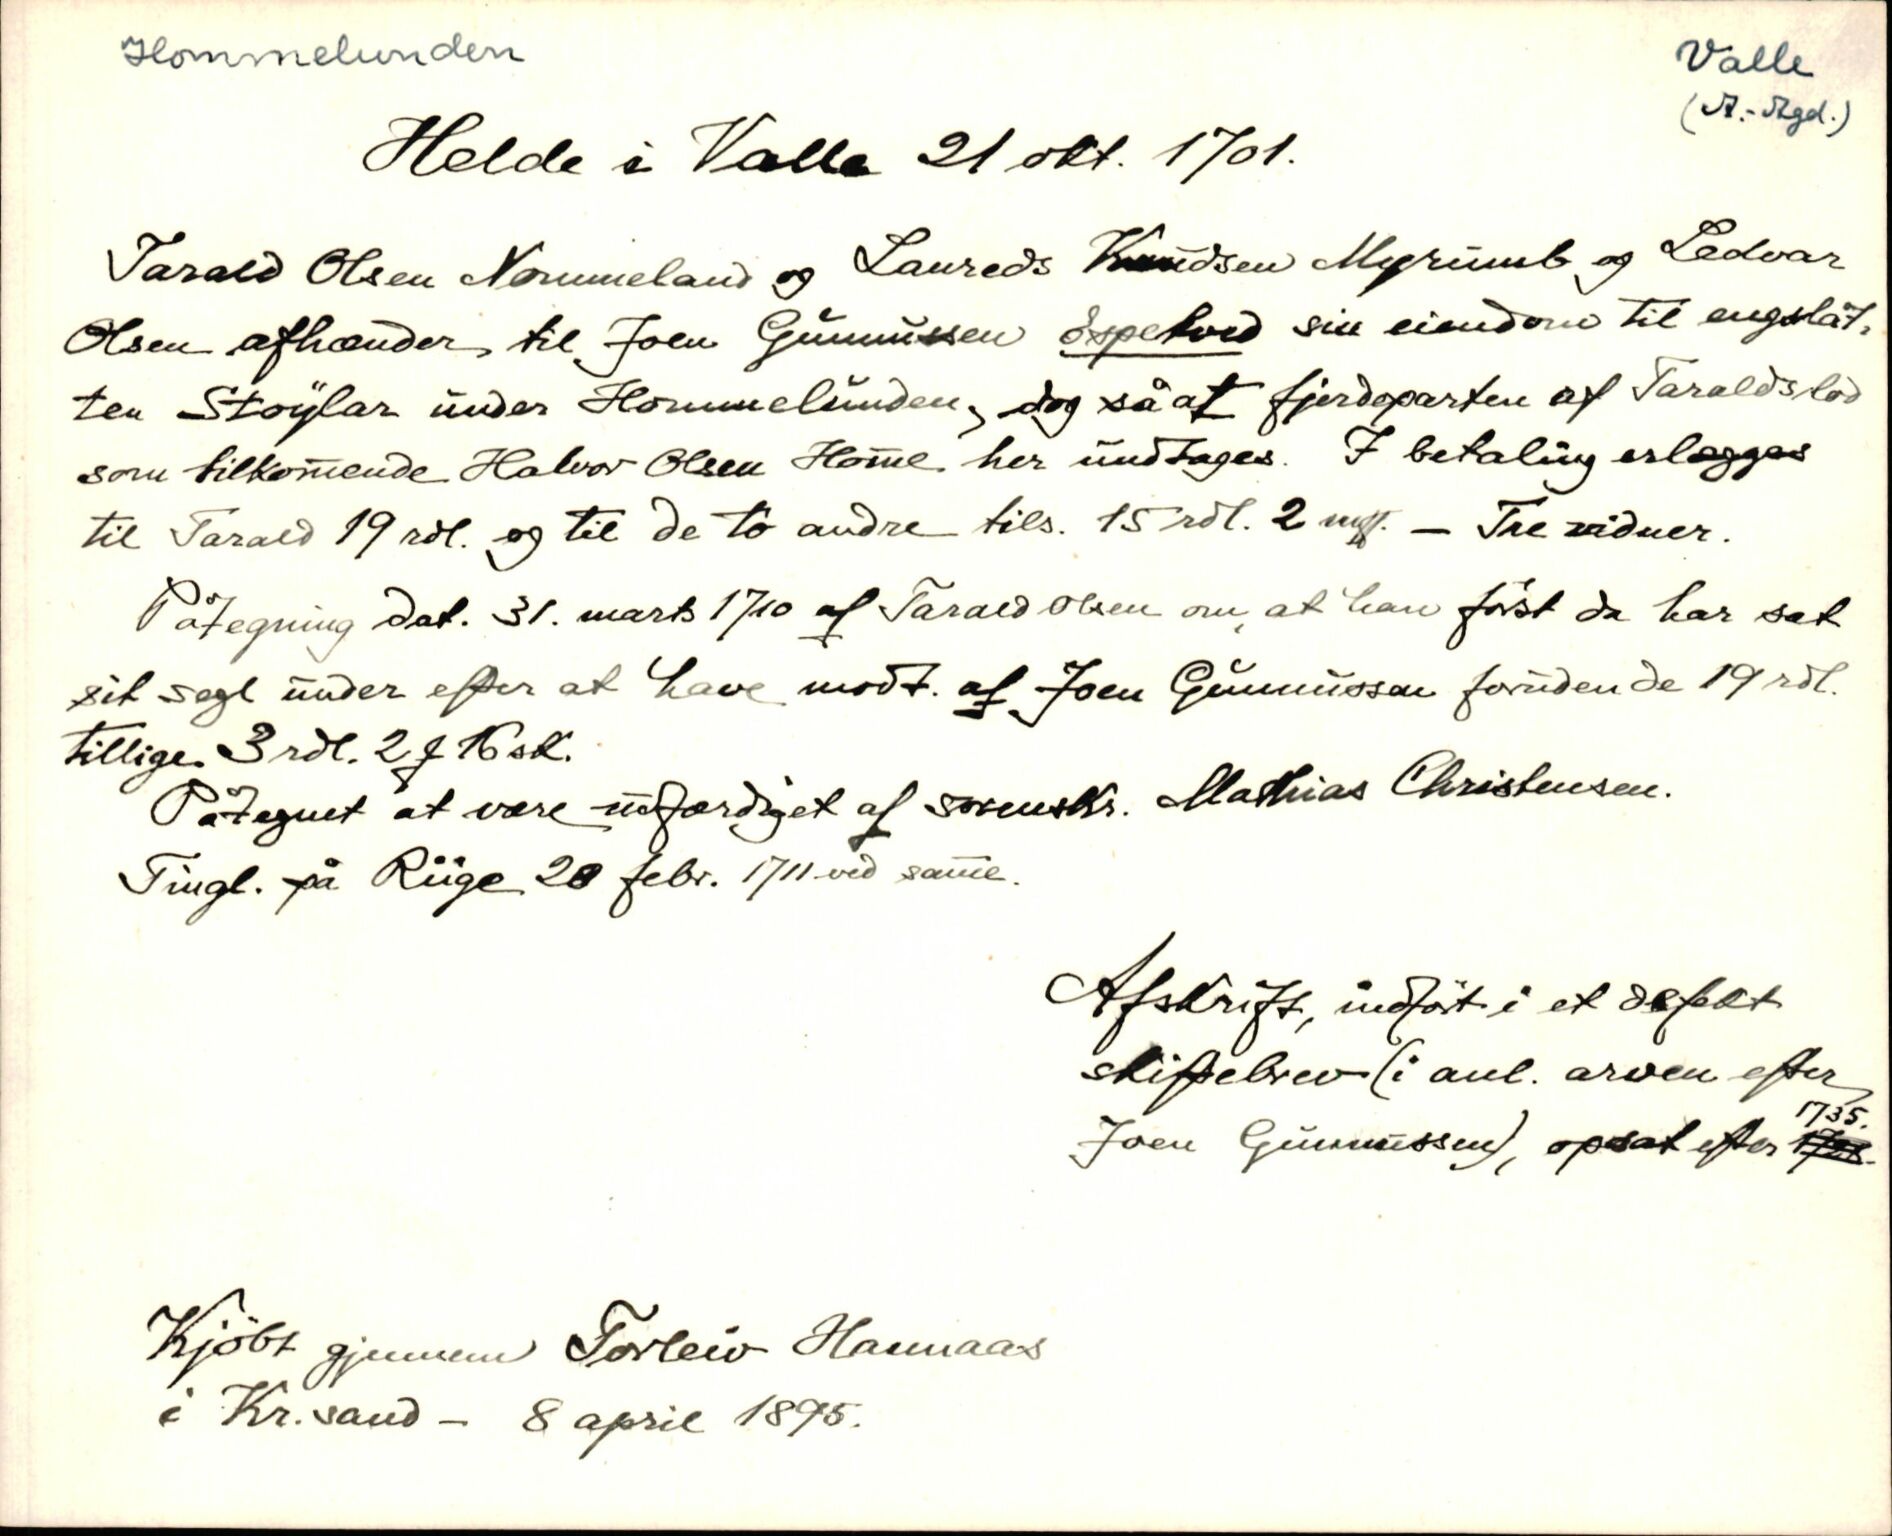 Hommelunden
Valle
(A.-Agd.)
Helde i Valle 21 okt. 1701.
Tarald Olsen Nommeland og Laureds Knudsen Myrumb og Ledvar
Olsen afhænder til Joen Gunnussen Espetved sin eiendom til engslåt-
ten Stoÿlar under Hommelunden, dog så at fjerdeparten af Taralds lod
som tilkom̅ende Halvor Olsen Hom̅e her undtages. I betaling erlægges
til Tarald 19 rdl. og til de to andre tils. 15 rdl. 2 mk. – Tre vidner.
Påtegning dat. 31. marts 1710 af Tarald Olsen om, at han först da har sat
sit segl under efter at have modt. af Joen Gunnussen foruden de 19 rdl.
tillige 3 rdl. 2 ƒ 16 sk.
Påtegnet at være udfærdiget af sorenskr. Mathias Christensen.
Tingl. på Riige 28 febr. 1711 ved sam̅e.
Afskrift, indfört i et defekt
skiftebrev (i anl. arven efter
Joen Gunnussen), opsat efter 1735.
Kjöbt gjennem Torleiv Hannaas
i Kr.sand – 8 april 1895.